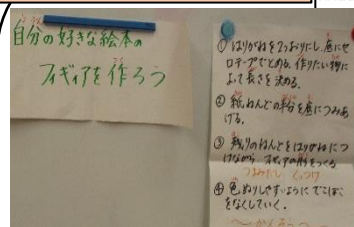 自分の好きな絵本の
フィギィアを作ろう
①はりがねを2つおりにし、底にセ
ロテープでとめる。作りたい物に
よって長さを決める。
②紙ねんどの半分を底につみあ
げる。
③残りのねんどをはりがねにつ
けながら、フィギィアの形をつくる
つまみだし くっつけ
④色ぬりしやすいようにでこぼこ
をなくしていく。